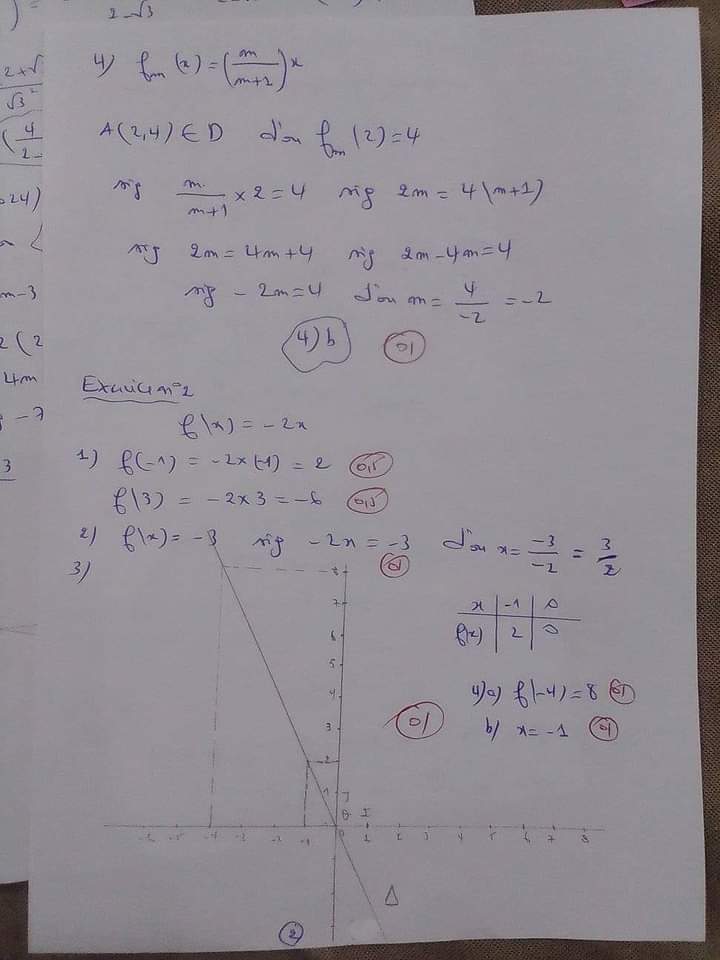 4) fm (x) = (m/(m+1)) x
A(2,4) ∈ D d'où fm (2) = 4
sig m/(m+1) × 2 = 4 sig 2m = 4(m+1)
sig 2m = 4m+4 sig 2m - 4m = 4
sig - 2m = 4 d'où m = 4/-2 = -2
4) b 01
Exercice n°2
f(x) = -2x
1) f(-1) = -2x(-1) = 2 0,5
f(3) = -2x3 = -6 0,5
2) f(x) = -3 sig -2x = -3 d'où x = -3/-2 = 3/2
01
3)
x | -1 | 0
f(x) | 2 | 0
4) a) f(-4) = 8 01
b) x = -1 01
01
8
7
6
5
4
3
2
1 J
0 I
-6 -5 -4 -3 -2 -1 0 1 2 3 4 5 6 7 8
Δ
2